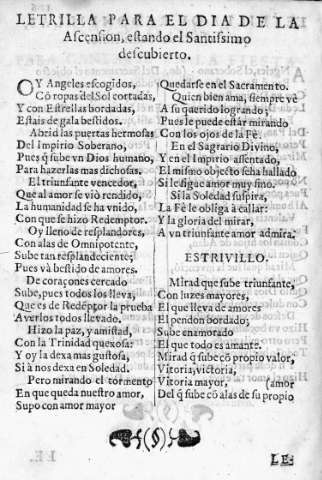 LETRILLA PARA EL DIA DE LA
Ascension, estando el Santissimo
descubierto.
OY Angeles escogidos,
Cõ ropas del Sol cortadas,
Y con Estrellas bordadas,
Estais de gala bestidos.
Abrid las puertas hermosas
Del Impirio Soberano,
Pues q̃ sube vn Dios humano,
Para hazerlas mas dichosas.
El triunfante vencedor,
Que al amor se viò rendido,
La humanidad se ha vnido,
Con que se hizo Redemptor.
Oy lleno de resplandores,
Con alas de Omnipotente,
Sube tan resplandeciente;
Pues và bestido de amores.
De coraçones cercado
Sube, pues todos los lleva,
Que es de Redẽptor la prueba
Averlos todos llevado.
Hizo la paz, y amistad,
Con la Trinidad quexosa:
Y oy la dexa mas gustosa,
Si à nos dexa en Soledad.
Pero mirando el tormento
En que queda nuestro amor,
Supo con amor mayor
Quedarse en el Sacramento.
Quien bien ama, siempre vè
A su querido logrando;
Pues le puede estàr mirando
Con los ojos de la Fè.
En el Sagrario Divino,
Y en el Impirio assentado,
El mismo objecto se ha hallado
Si le sigue amor muy fino.
Si la Soledad suspira,
La Fè le obliga à callar:
Y la gloria del mirar,
A vn triunfante amor admira.
ESTRIVILLO.
Mirad que sube triunfante,
Con luzes mayores,
El que lleva de amores
El pendon bordado;
Sube enamorado
El que todo es amante.
Mirad q̃ sube cõ propio valor,
Vitoria, victoria,
Vitoria mayor, (amor
Del q̃ sube cõ alas de su propio
LE-